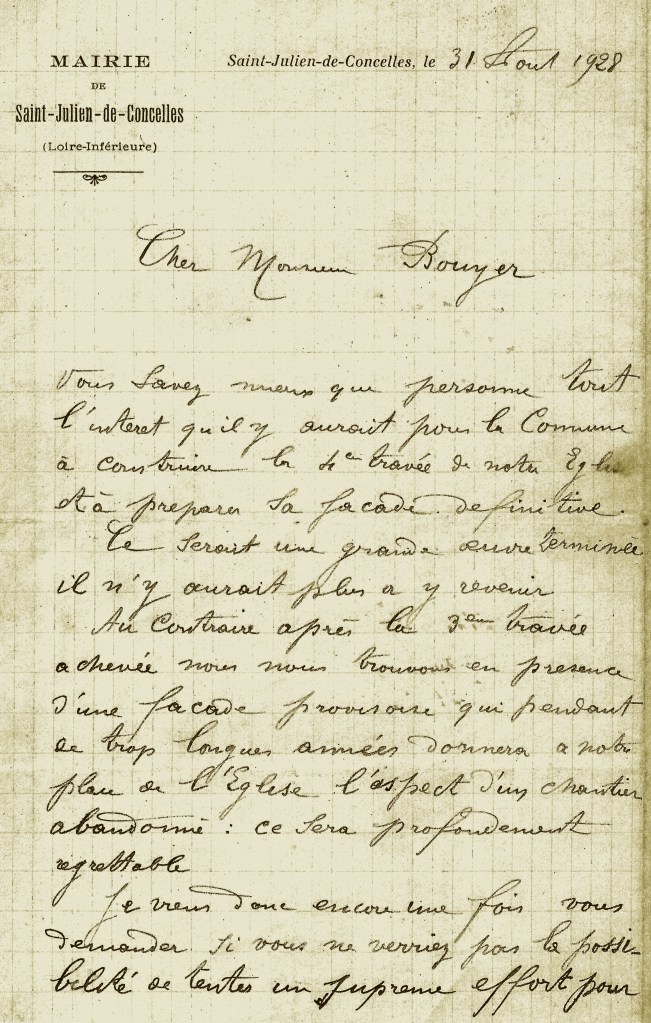 MAIRIE
DE
Saint-Julien-de-Concelles
(Loire-Inférieure)
Saint-Julien-de-Concelles, le 31 Aout 1928
Cher Monsieur Bouyer
Vous savez mieux que personne tout
l'interet qu'il y aurait pour la Commune
à construire la 4em travée de notre Eglise
et à preparer sa facade definitive.
Ce serait une grande œuvre terminée
il n'y aurait plus a y revenir
Au contraire après la 3em travée
achevée nous nous trouvons en presence
d'une facade provisoire qui pendant
de trop longues années donnera a notre
place de l'Eglise l'aspect d'un chantier
abandonné : ce sera profondement
regrettable
Je viens donc encore une fois vous
demander si vous ne verriez pas la possi-
bilité de tenter un supreme effort pour